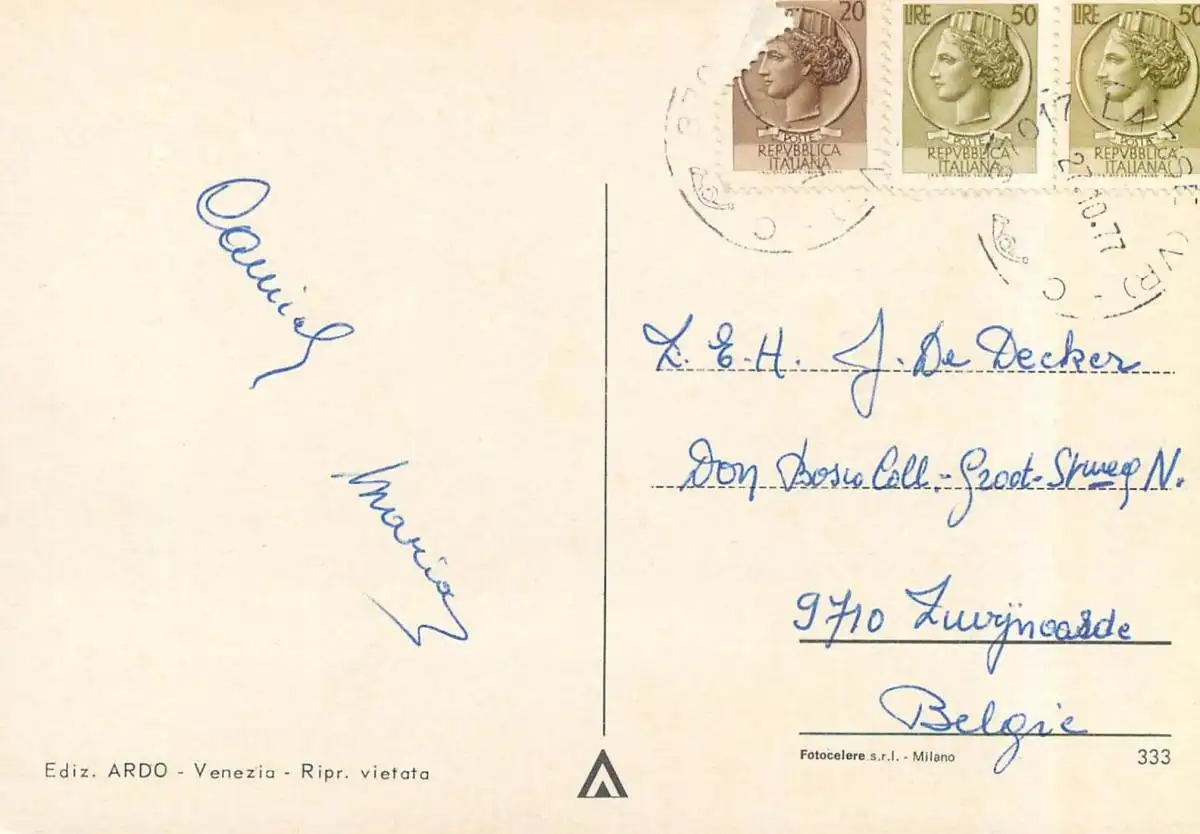 20
LIRE 50
LIRE 50
POSTE
REPVBBLICA
ITALIANA
POSTE
REPVBBLICA
ITALIANA
POSTE
REPVBBLICA
ITALIANA
27.10.77
(VR) - C
Maria
Z. E. H. J. De Decker
Don Bosco Coll. - Groot-Stweg N.
9710 Zwijnaarde
Belgie
Ediz. ARDO - Venezia - Ripr. vietata
Fotocelere s.r.l. - Milano
333